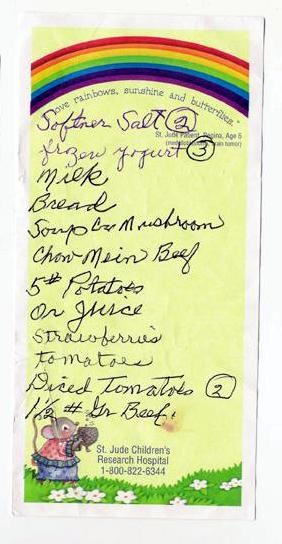 love rainbows, sunshine and butterflies."
St. Jude Patient, Regina, Age 5
Softner Salt 2
frozen yogurt 3
Milk
Bread
Soup Can Mushroom
Chow Mein Beef
5# Potatoes
Or Juice
Strawberries
Tomatoes
Diced Tomatoes 2
1½ # Gr Beef.
St. Jude Children's
Research Hospital
1-800-822-6344